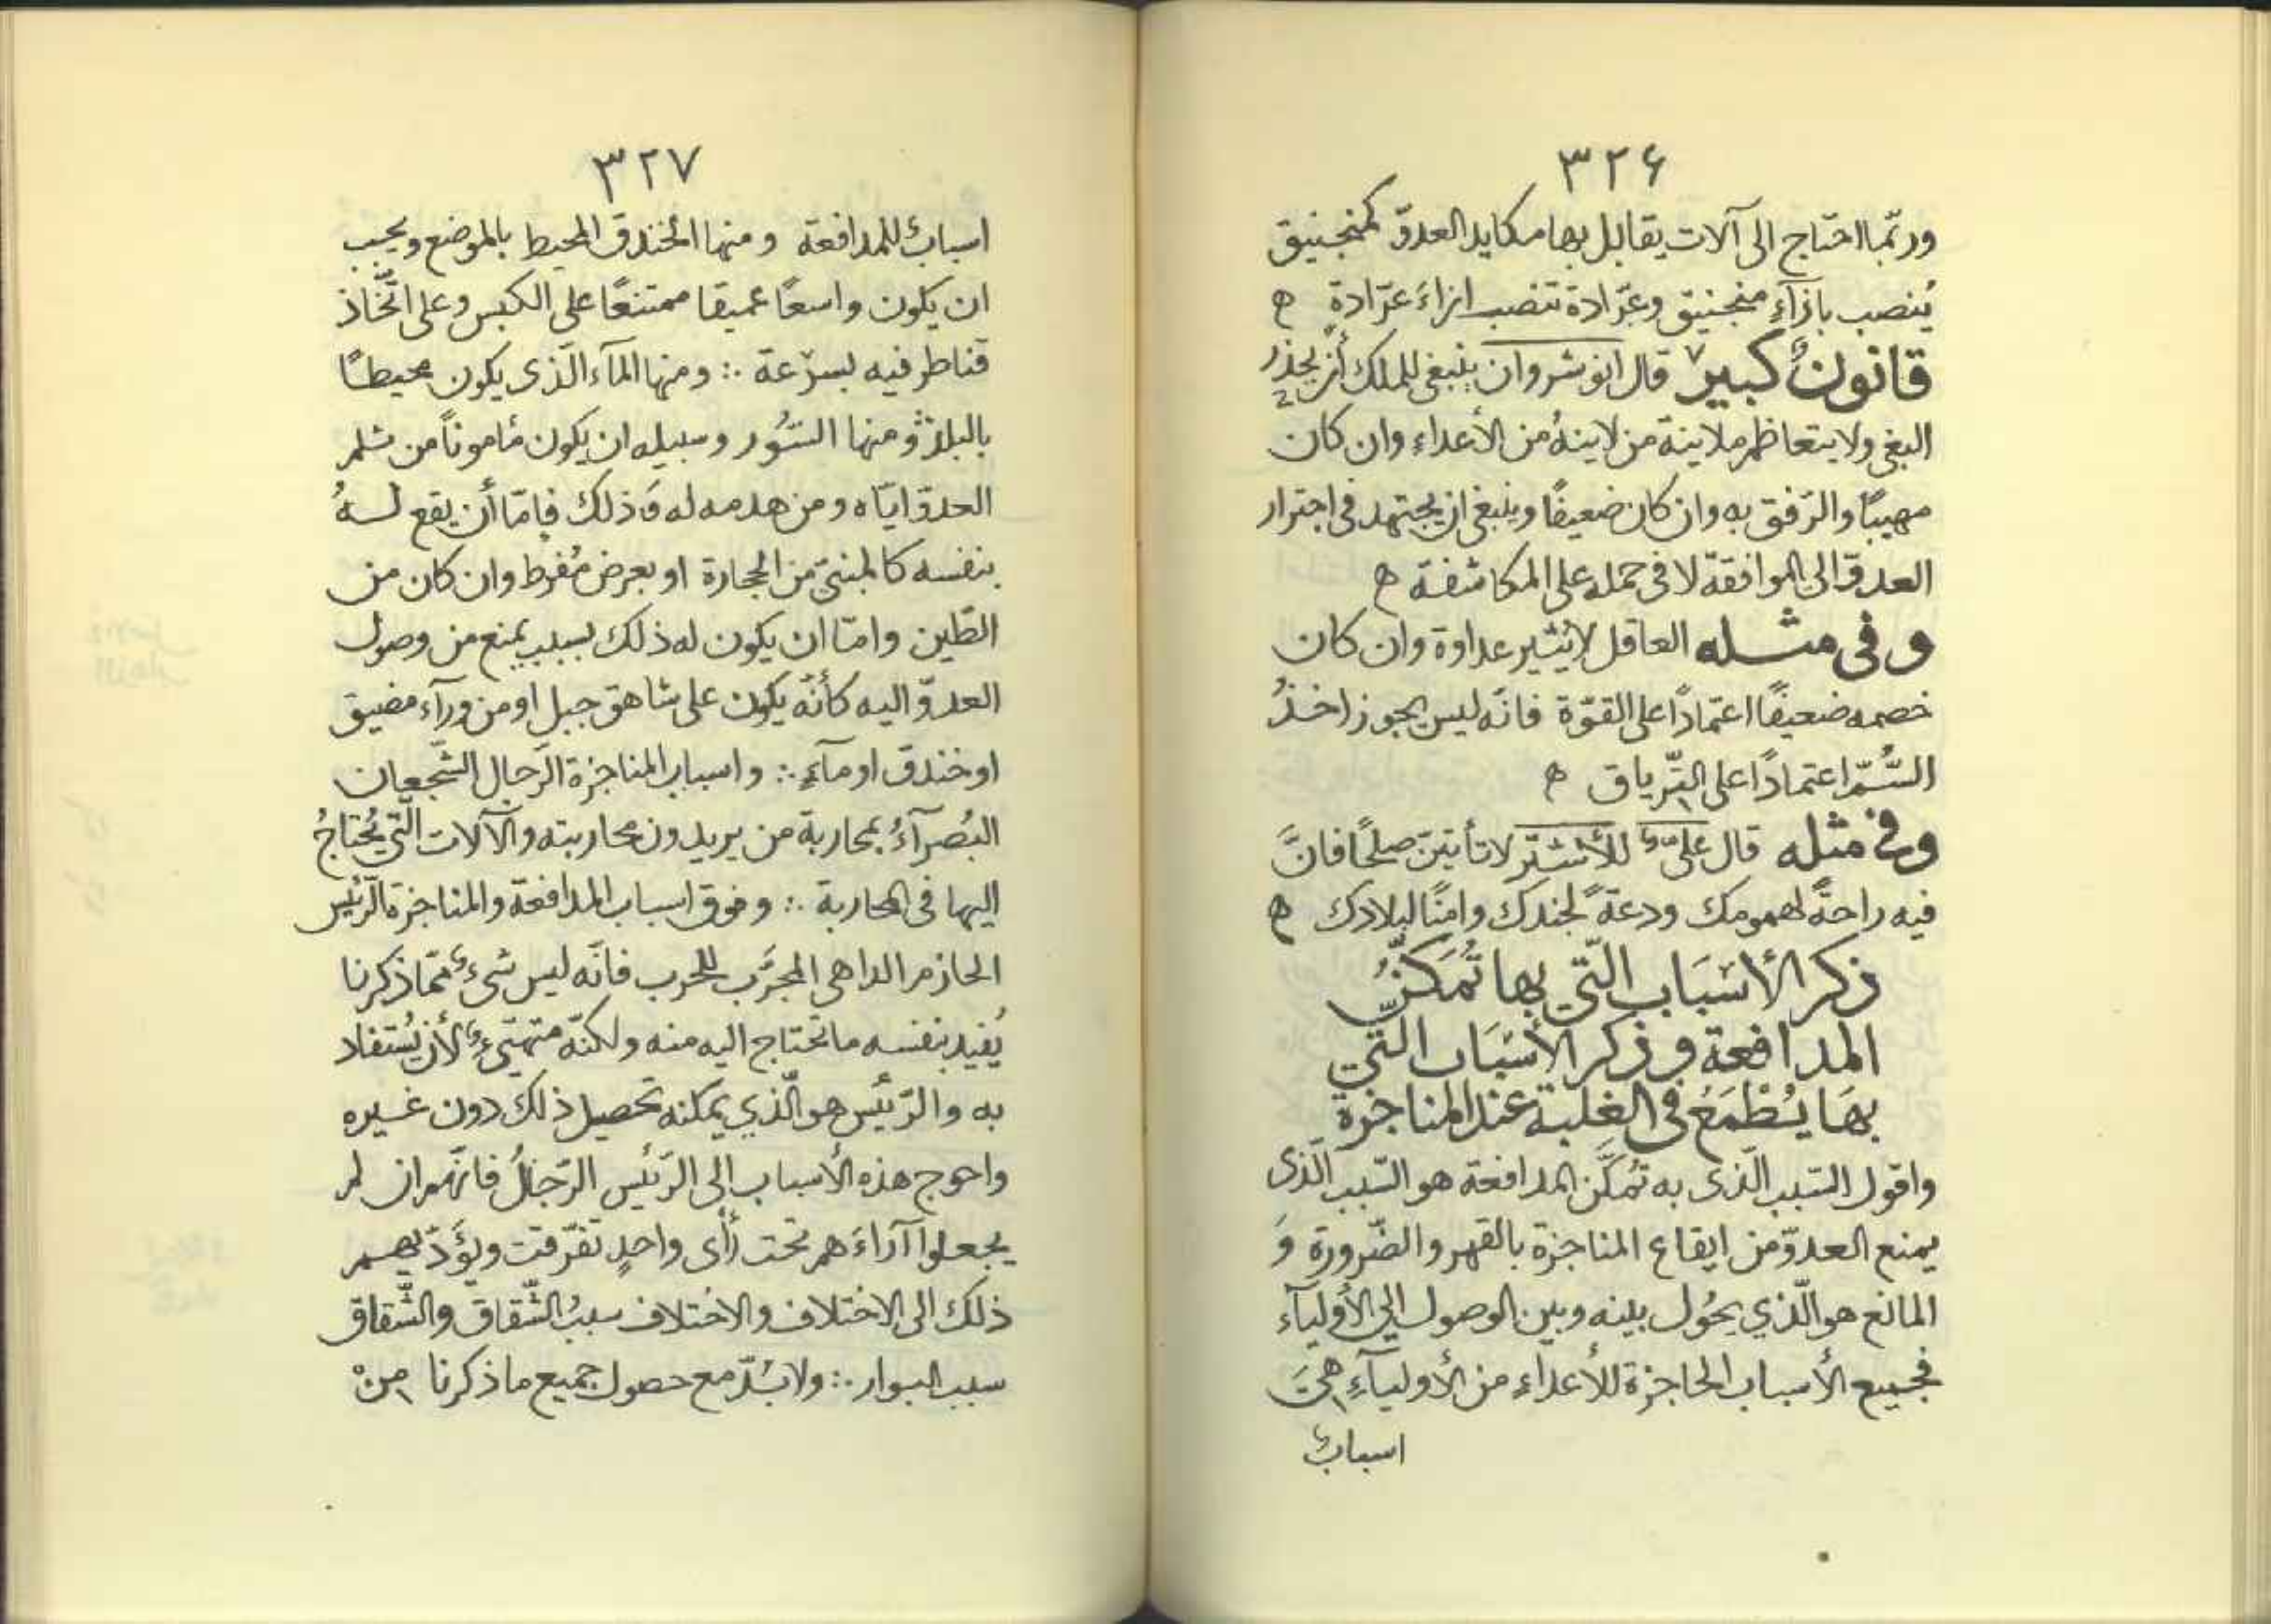 ٣٢۶
وربّما احتاج الى آلات يقابل بها مكايد العدوّ كمنجنيق
يُنصب بازآءِ منجنيق وعرّادة تنصب ازاءَ عرّادة ه
قانونٌ كبير قال انوشروان ينبغى للملك أن يحذر
البغى ولا يتعاظم ملاينة من لاينهُ من الأعداء وان كان
مهيبًا والرّفق به وان كان ضعيفًا وينبغى ان يجتهد فى اجترار
العدوّ الى الموافقة لا فى حمله على المكاشفة ه
وفى مثله العاقل لا يُثير عداوة وان كان
خصمه ضعيفًا اعتمادًا على القوّة فانّه ليس يجوز اخذُ
السُّمّ اعتمادًا على التّرياق ه
وفى مثله قال علىّ للأشتر لا تأبينّ صلحًا فانّ
فيه راحةً لهمومك ودعةً لجندك وامنًا لبلادك ه
ذكر الأسْبَاب الّتي بها تُمَكّنُ
المدافعة و ذكر الأسْبَاب الّتي
بهَا يُطْمَعُ فى الغلبة عند المناجزة
واقول السّبب الّذى به تُمكَّن المدافعة هو السّبب الّذى
يمنع العدوّ من ايقاع المناجزة بالقهر والضّرورة وَ
المانع هو الّذي يحُول بينه وبين الوصول الى الأوليآء
فجميع الأسباب الحاجزة للأعداءِ من الأوليآءِ هىَ
اسبابٌ
٣٢٧
اسبابٌ للمدافعة ومنها الخندق المحيط بالموضع ويجب
ان يكون واسعًا عميقا ممتنعًا على الكبس وعلى اتّخاذ
قناطر فيه بسرعة ∴ ومنها المآء الّذى يكون محيطًا
بالبلد ∴ ومنها السّوُر وسبيله ان يكون مأمونًا من ثلم
العدوّ ايّاه ومن هدمه له وَذلك فإمّا أن يقع لهُ
بنفسه كالمبنىّ من الحجارة او بعرض مُفرط وان كان من
الطّين وامّا ان يكون له ذلك بسبب يمنع من وصول
العدوّ اليه كأنّه يكون على شاهق جبل او من ورآء مضيق
او خندق او مآءٍ ∴ واسباب المناجزة الرّجال الشّجعان
البُصرآءُ بمحاربة من يريدون محاربته والآلات الّتي يُحتاجُ
اليها فى المحاربة ∴ وفوق اسباب المدافعة والمناجزة الرّئيس
الحازم الداهى المجرَّب للحرب فانّه ليس شىءٌ ممّا ذكرنا
يُفيد بنفسه ما تحتاج اليه منه ولكنّه متهيّىءٌ لأن يُستفاد
به والرّئيس هو الّذي يمكنه تحصيل ذلك دون غيره
واحوج هذه الأسباب الى الرّئيس الرّجالُ فانّهم ان لم
يجعلوا آراءَهم تحت رأى واحدٍ تفرّقت ويؤَدّ بهم
ذلك الى الاختلاف والاختلاف سببُ الشّقاق والشّقاق
سبب البوار ∴ ولا بُدّ مع حصول جميع ما ذكرنا من